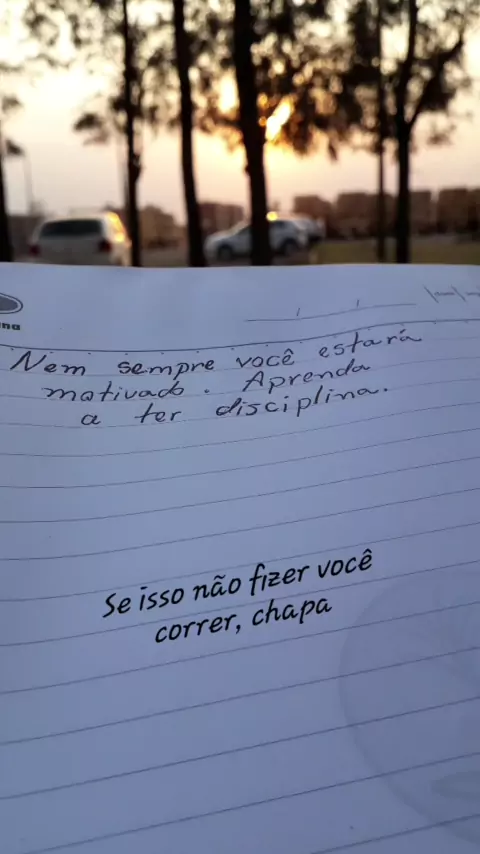 Nem sempre você estará
motivado. Aprenda
a ter disciplina.
Se isso não fizer você
correr, chapa